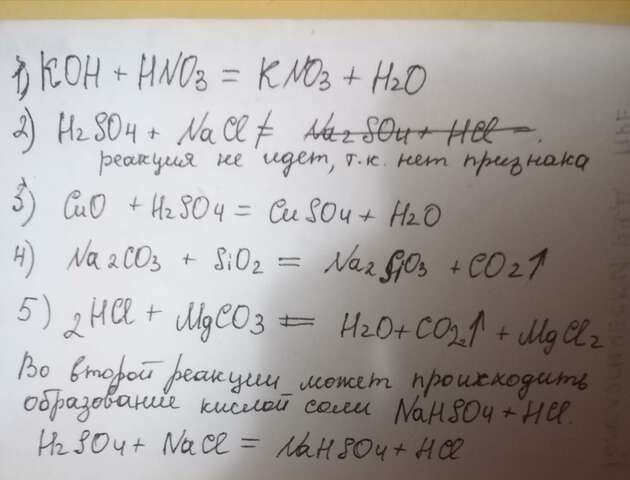 1) KOH + HNO3 = KNO3 + H2O
2) H2SO4 + NaCl ≠ Na2SO4 + HCl.
реакция не идет, т.к. нет признака
3) CuO + H2SO4 = CuSO4 + H2O
4) Na2CO3 + SiO2 = Na2SiO3 + CO2↑
5) 2HCl + MgCO3 = H2O + CO2↑ + MgCl2
Во второй реакции может происходить
образование кислой соли NaHSO4 + HCl.
H2SO4 + NaCl = NaHSO4 + HCl